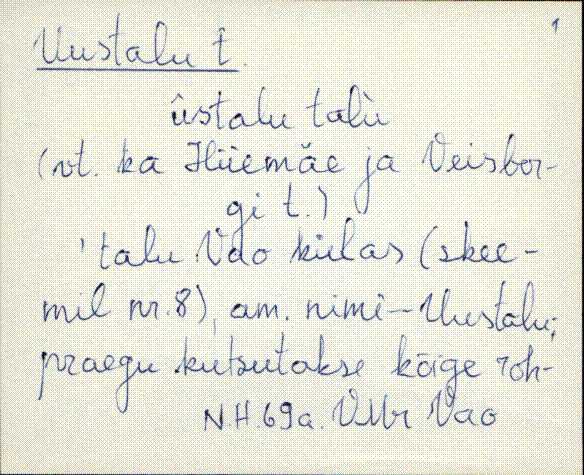 1
Uustalu t.
ûstalu talù
(vt. ka Hiiemäe ja Veisbor-
gi t.)
'talu Vao külas (skee-
mil nr. 8), am. nimi - Uustalu;
praegu kutsutakse kõige roh-
N.H. 69a. VMr Vao